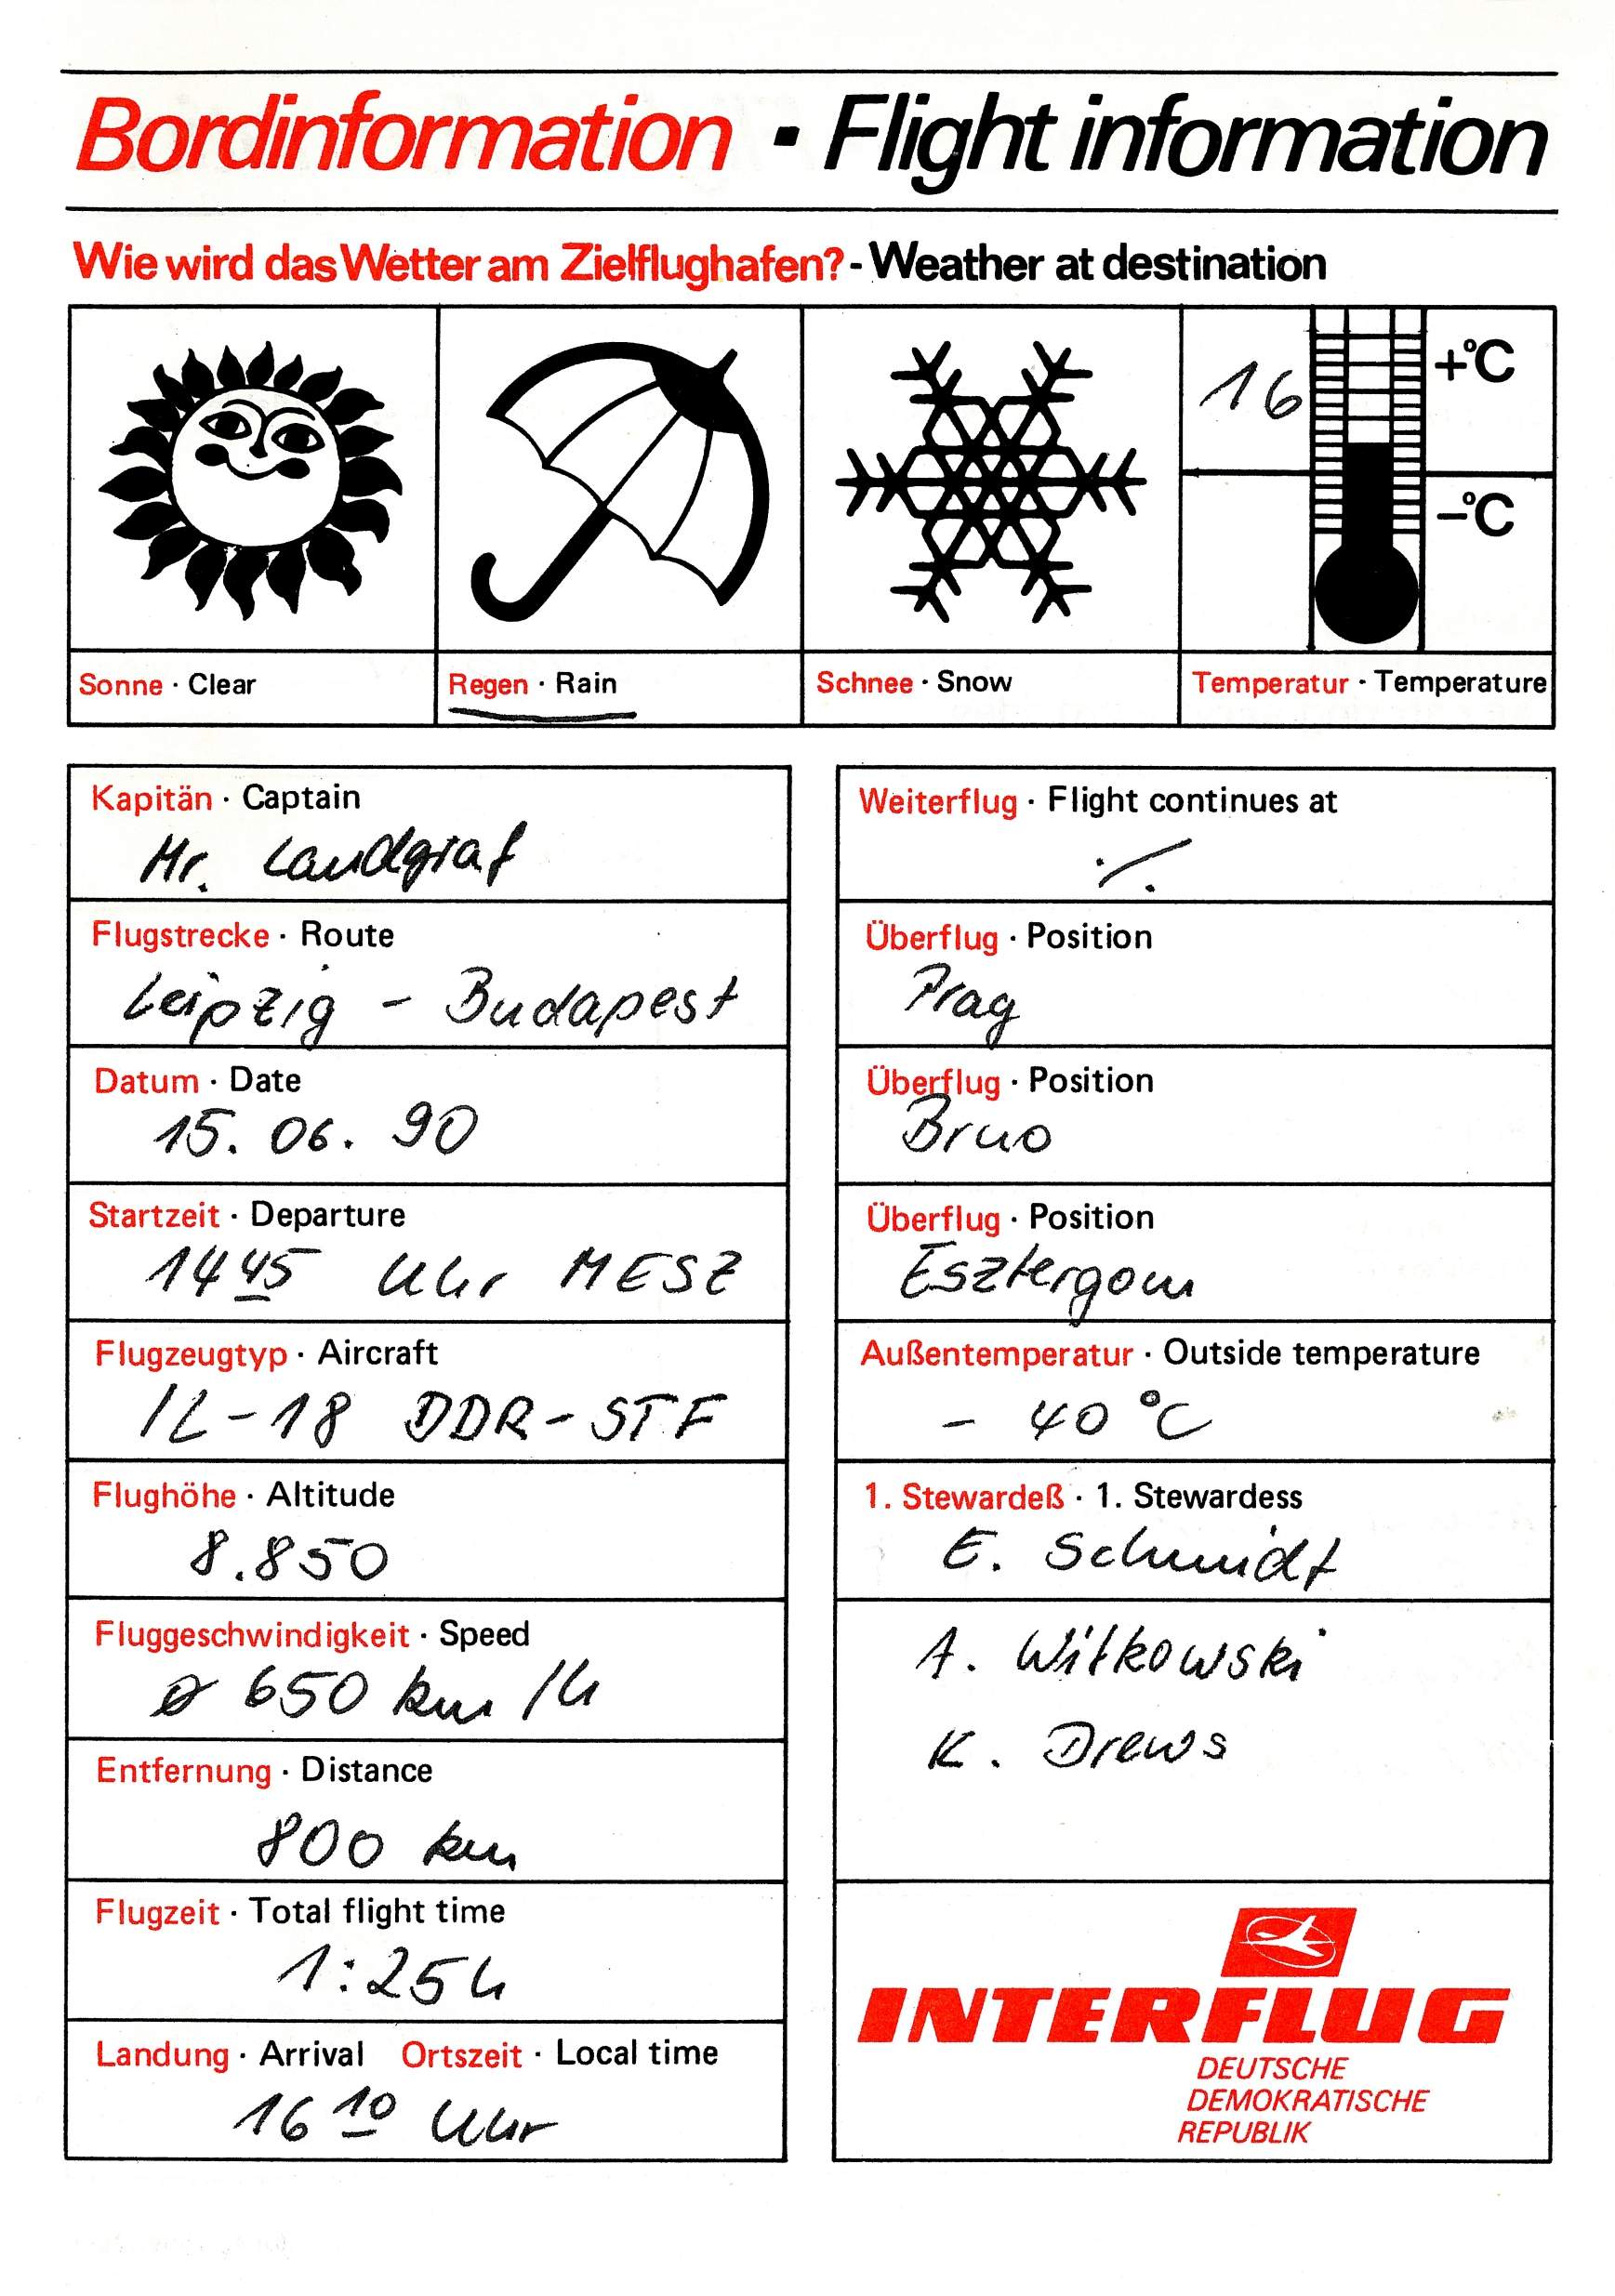 Bordinformation · Flight information
Wie wird das Wetter am Zielflughafen? - Weather at destination
16
+°C
-°C
Sonne · Clear
Regen · Rain
Schnee · Snow
Temperatur · Temperature
Kapitän · Captain
Hr. Landgraf
Flugstrecke · Route
Leipzig - Budapest
Datum · Date
15. 06. 90
Startzeit · Departure
14 45 Uhr MESZ
Flugzeugtyp · Aircraft
IL-18 DDR-STF
Flughöhe · Altitude
8.850
Fluggeschwindigkeit · Speed
ø 650 km/h
Entfernung · Distance
800 km
Flugzeit · Total flight time
1:25 h
Landung · Arrival Ortszeit · Local time
16 10 Uhr
Weiterflug · Flight continues at
./.
Überflug · Position
Prag
Überflug · Position
Brno
Überflug · Position
Esztergom
Außentemperatur · Outside temperature
- 40 °C
1. Stewardeß · 1. Stewardess
E. Schmidt
A. Witkowski
K. Drews
INTERFLUG
DEUTSCHE
DEMOKRATISCHE
REPUBLIK